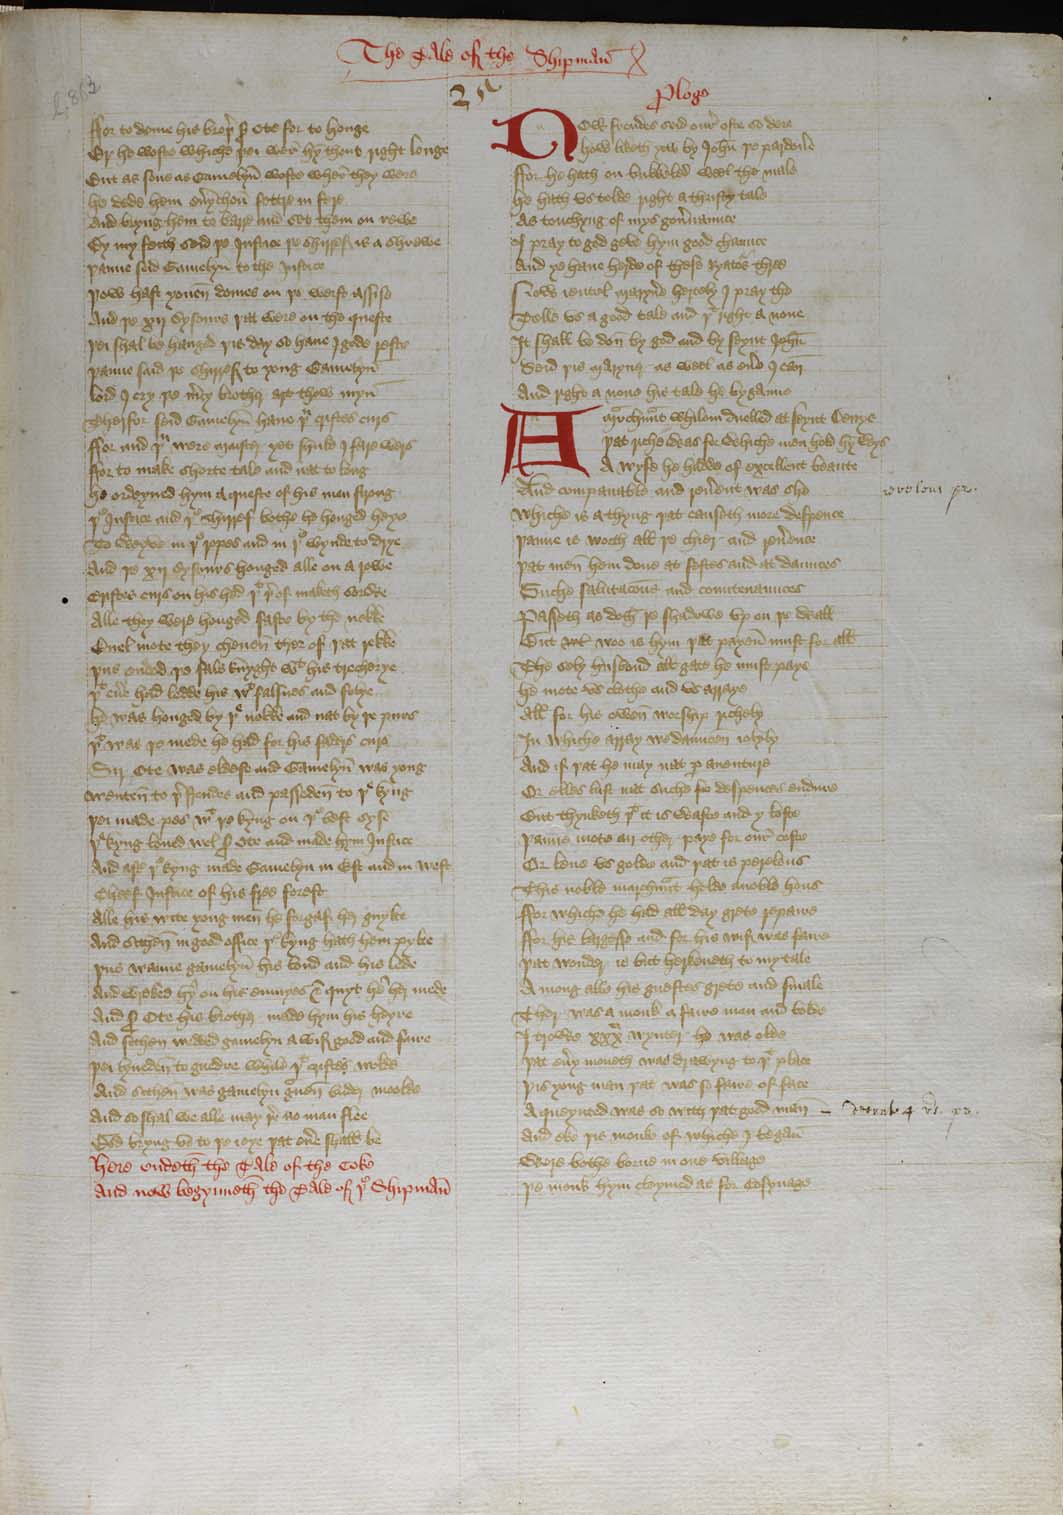 The Tale of the Shipmañ
25
ffor to deme his broþ̉ S̉ Ote for to honge
Or he woste whiche þei wer̉ hy̅ thouȝ right longe
But as sone as Gamelyn̄ woste wher̉ they were
he dede hem eủychon̄ fettre in fere
And bryng hem to barre and set them on rewe
By my feith seid þe Justice þe shirref is a shrewe
þanne seid Gamelyn̄ to the Justice
Now hast youen̄ domes on þe werst assise
And þe xij sysours þat were on the queste
þei shal be hanged þis day so haue I gode reste
þanne said þe shirref to yong Gamelyn̄
lord I cry þe m̉cy brother art thow myn̄
Therfor seid Gamelyn̄ haue þu cristes curs
ffor and þu were maister yet shuld I fare wers
ffor to make shorte tale and nat to long
he ordeyned hym a queste of his men strong
þe Justice and þe shirref bothe he honged heye
To weyve in þe ropes and in þe wynde to drye
And þe xij sysours honged alle on a rewe
Cristes curs on his hed þt þ̉of maketh
Alle they were honged faste by the nekke
Euel mote they cheuen ther of þat rekke
þus ended þe fals knyght wt his trecherye
þt eủe had ledde his wt falsnes and folye
he was honged by þe nekke and nat by þe purs
þt was þe mede he had for his fadris curs
Sir Ote was eldest and Gamelyn̄ was yong
wenten̄ to þ̉ frendes and passeden̄ to þe kyng
þei made pes wt þe kyng on þe best syse
þe kyng loued wel S̉ Ote and made hym Justice
And aft̉ þe kyng made Gamelyn in Est and in west
Cheef Justice of his free forest
Alle his wite yong men he forgaf her gwylte
And sethen̄ in good office þe kyng hath hem pylte
þus wanne gamelyn̄ his lond and his lede
And wreked hy̅ on his enmyes & quyt he̅ her mede
And S̉ Ote his brother made hym his heyre
And sethen wedded gamelyn a wif good and faire
þei lyueden̄ to guedre while þt cristes wolde
And sethen̄ was gamelyn g̉uen̄ vnder moolde
And so shal we alle may þ̉ no man flee
God bryng vs to þe ioye þat eủe shall be
here endeth the Tale of the Coke
And now begynneth the Tale of þe Shipmañ
Plogo
Now frendes seid our̉ oste so dere
how liketh yow by John̄ þe pardoñe
ffor he hath on bukkeled weel the male
he hath vs tolde right a thrifty tale
As touchyng of mys goủnaunce
I pray to god geve hym good chaunce
And ye haue herde of these ryatos thre
Now ientel maryne hertely I pray the
Telle vs a good tale and þt right a none
It shall be don̄ by god and by seynt John̄
Seid þis maryner as weel as euer I can̄
And right a none his tale he byganne
A m̉chant whilom duelled at seynt Denyse
þat riche was for whiche men hold hy̅ wys
A wyfe he hadde of excellent beaute
And companable and reủent was she
whiche is a thyng þat causeth more despence
þanne is worth all þe chier and reủence
þat men̄ hem done at festes and at daunces
Suche salutacōns and countenaunces
Passeth as doth þe shadowe vp on þe wall
But wt woo is hym þat payen̄ must for all
The sely husband all gate he must paye
he mote vs clothe and vs arraye
All for his owen̄ worship richely
In whiche array we dauncen iolyly
And if þat he may nat p auenture
Or elles list nat suche despences endure
But thynketh þt it is waste and y loste
þanne mote an other paye for our̉ coste
Or lene vs golde and þat is perelous
This noble marchant helde a noble hous
ffor whiche he had all day grete repaire
ffor his largesse and for his wif was faire
þat wonder is but herkeneth to my tale
A mong alle his guestes grete and smale
Ther was a monk a faire man and bolde
I trowe xxx wynter he was olde
þat eủy moneth was drawyng to þt place
þis yong man þat was so faire of face
A queynted was so with þat good man̄
And eke þis monk of whiche I began̄
Were bothe borne in one village
þe monk hym cleymed as for Cosynage